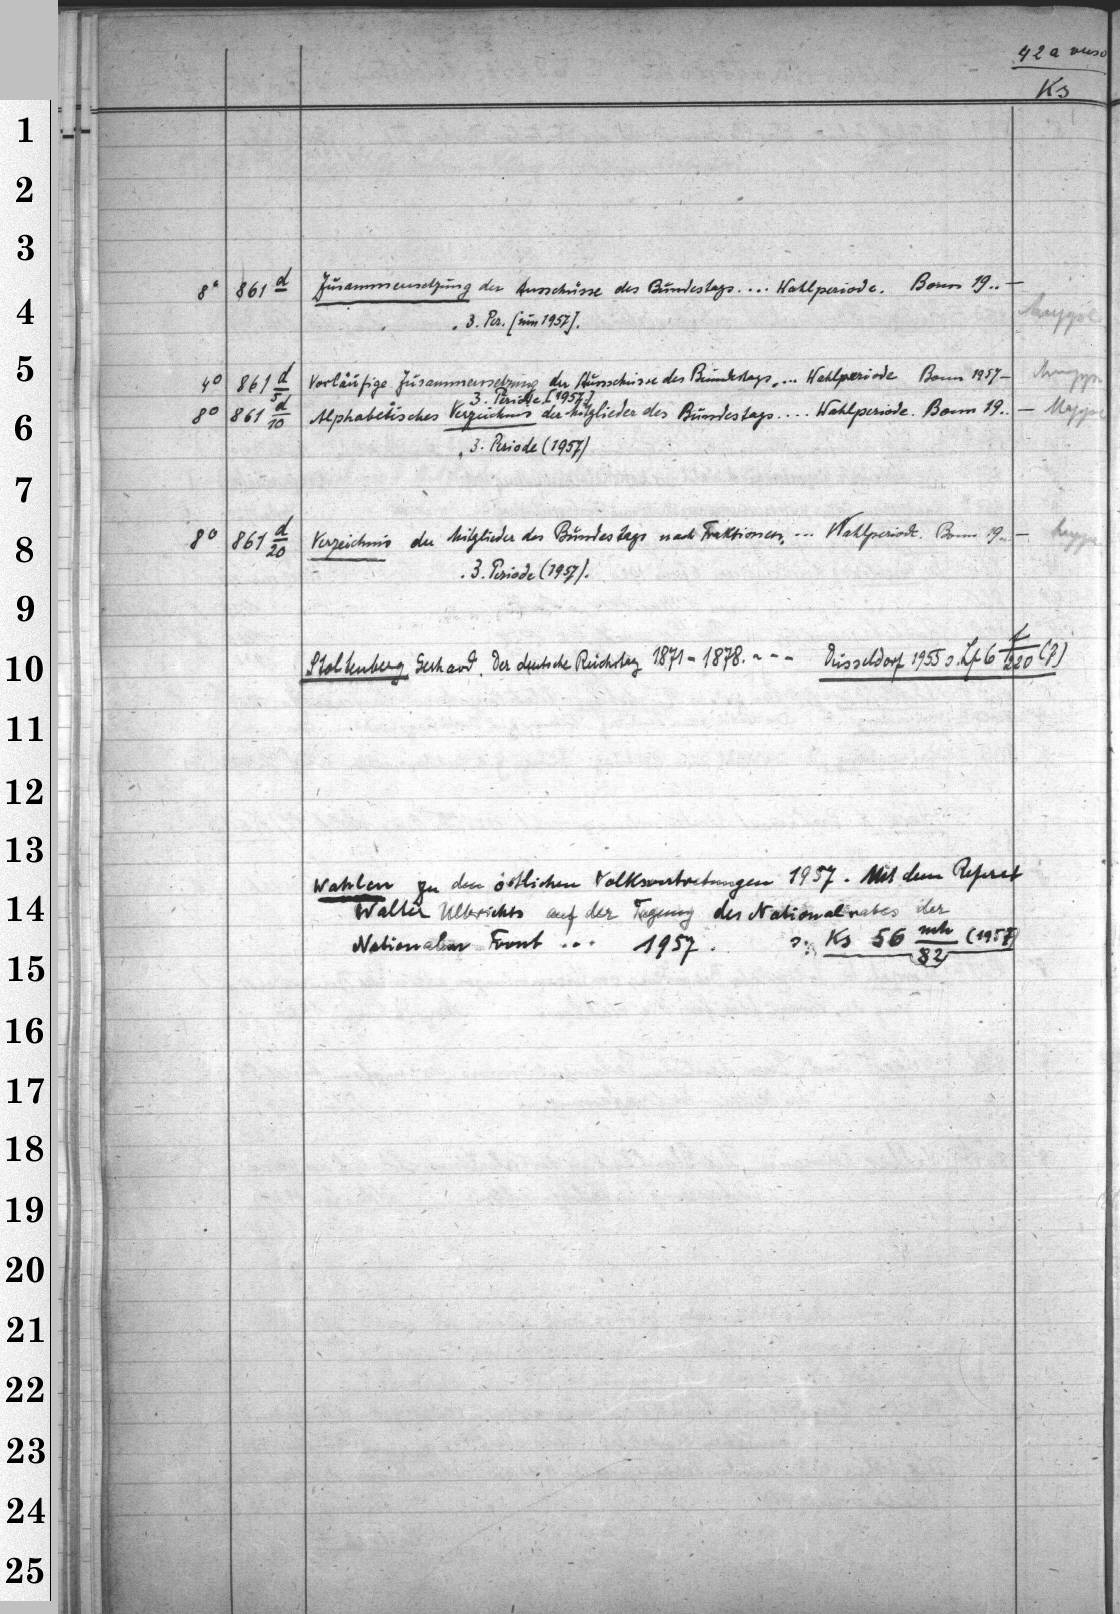 42a verso
Ks
1
2
3
8° 861 d Zusammensetzung der Ausschüsse des Bundestags.... Wahlperiode. Bonn 19.. —
4
. 3. Per. [1957].
Mappe
5
4° 861 d/5 Vorläufige Zusammensetzung der Ausschüsse des Bundestags, ... Wahlperiode Bonn 1957 — Mappe
3. Periode [1957]
8° 861 d/10 Alphabetisches Verzeichnis der Mitglieder des Bundestags .... Wahlperiode. Bonn 19.. — Mappe
6
. 3. Periode (1957)
7
8° 861 d/20 Verzeichnis der Mitglieder des Bundestags nach Fraktionen, ... Wahlperiode. Bonn 19.. — Mappe
8
. 3. Periode (1957).
9
10 Stoltenberg, Gerhard. Der deutsche Reichstag 1871 - 1878. - - - Düsseldorf 1955 s. Lf 6 /220 (7)
11
12
13
Wahlen zu den östlichen Volksvertretungen 1957. Mit dem Referat
14 Walter Ulbrichts auf der Tagung des Nationalrates der
Nationalen Front ... 1957. s. Ks 56 mh/82 (1957)
15
16
17
18
19
20
21
22
23
24
25